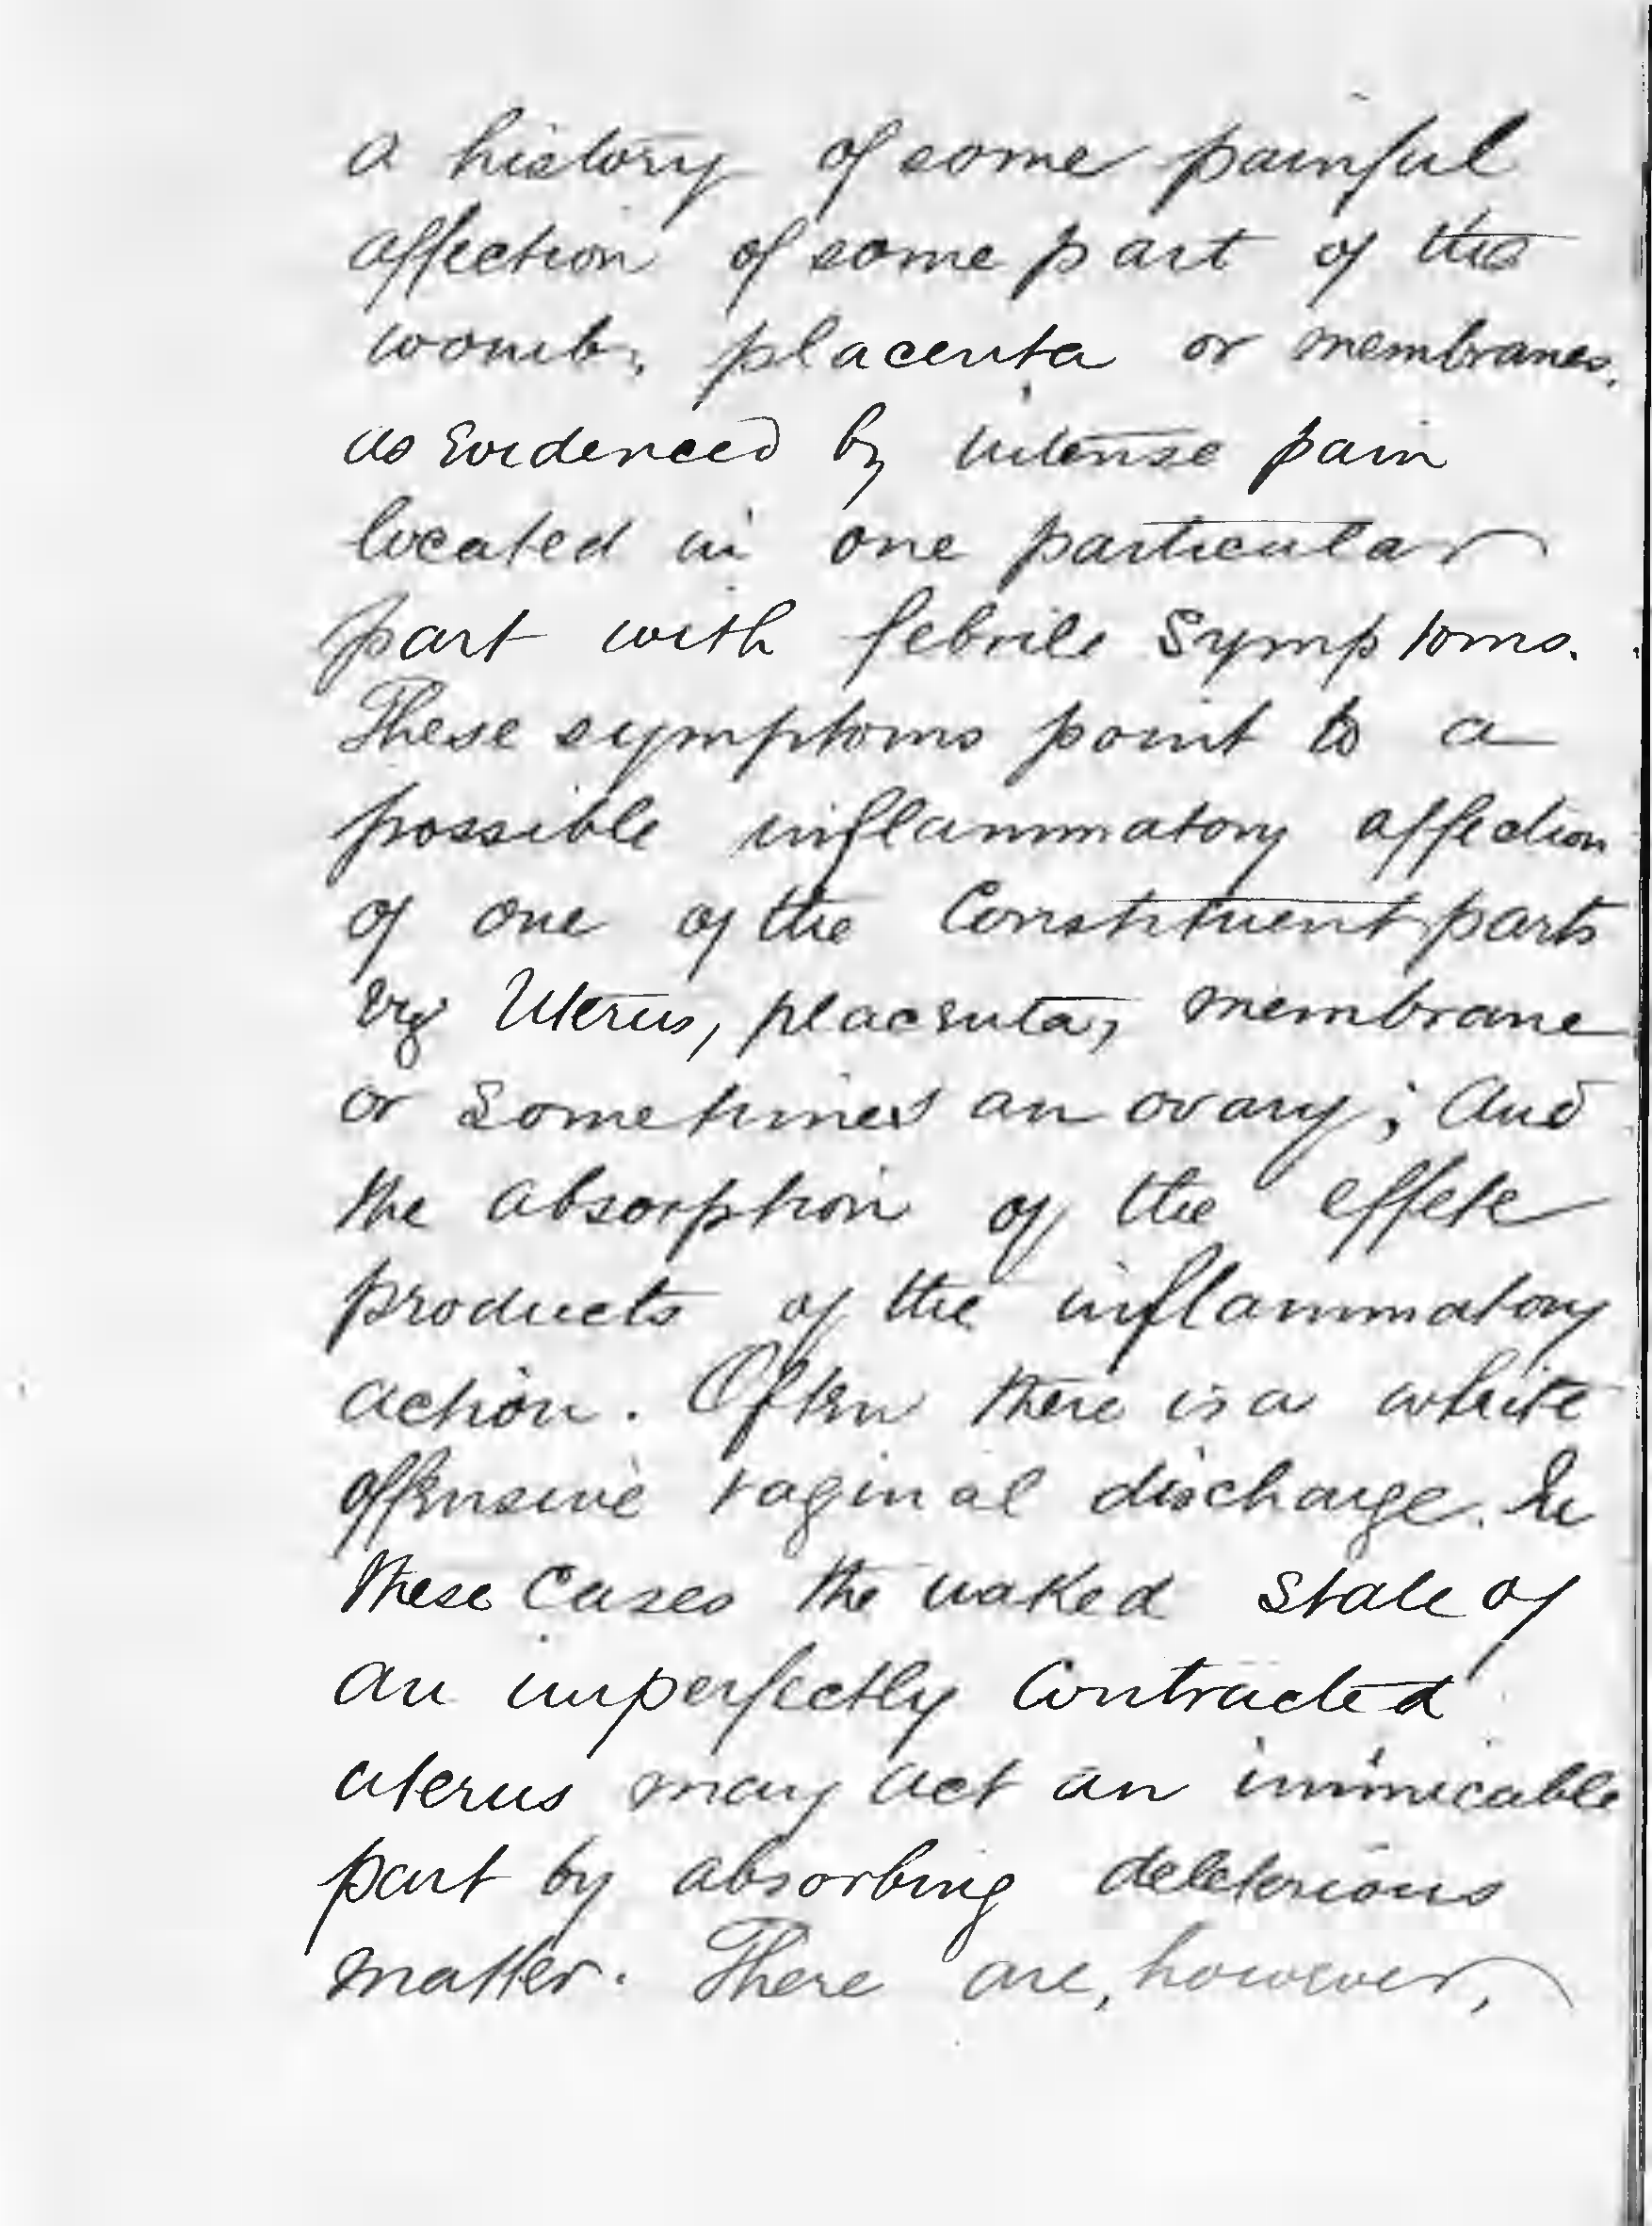 a history of some painful
affection of some part of the
womb, placenta or membranes,
as evidenced by intense pain
located in one particular
part with febrile symptoms.
These symptoms point to a
possible inflammatory affection
of one of the Constituent parts
viz Uterus, placenta, membrane
or sometimes an ovary; and
the absorption of the effete
products of the inflammatory
action. Often there is a white
offensive vaginal discharge. In
these Cases the naked state of
an imperfectly Contracted
uterus may act an inimicable
part by absorbing deleterious
matter. There are, however,